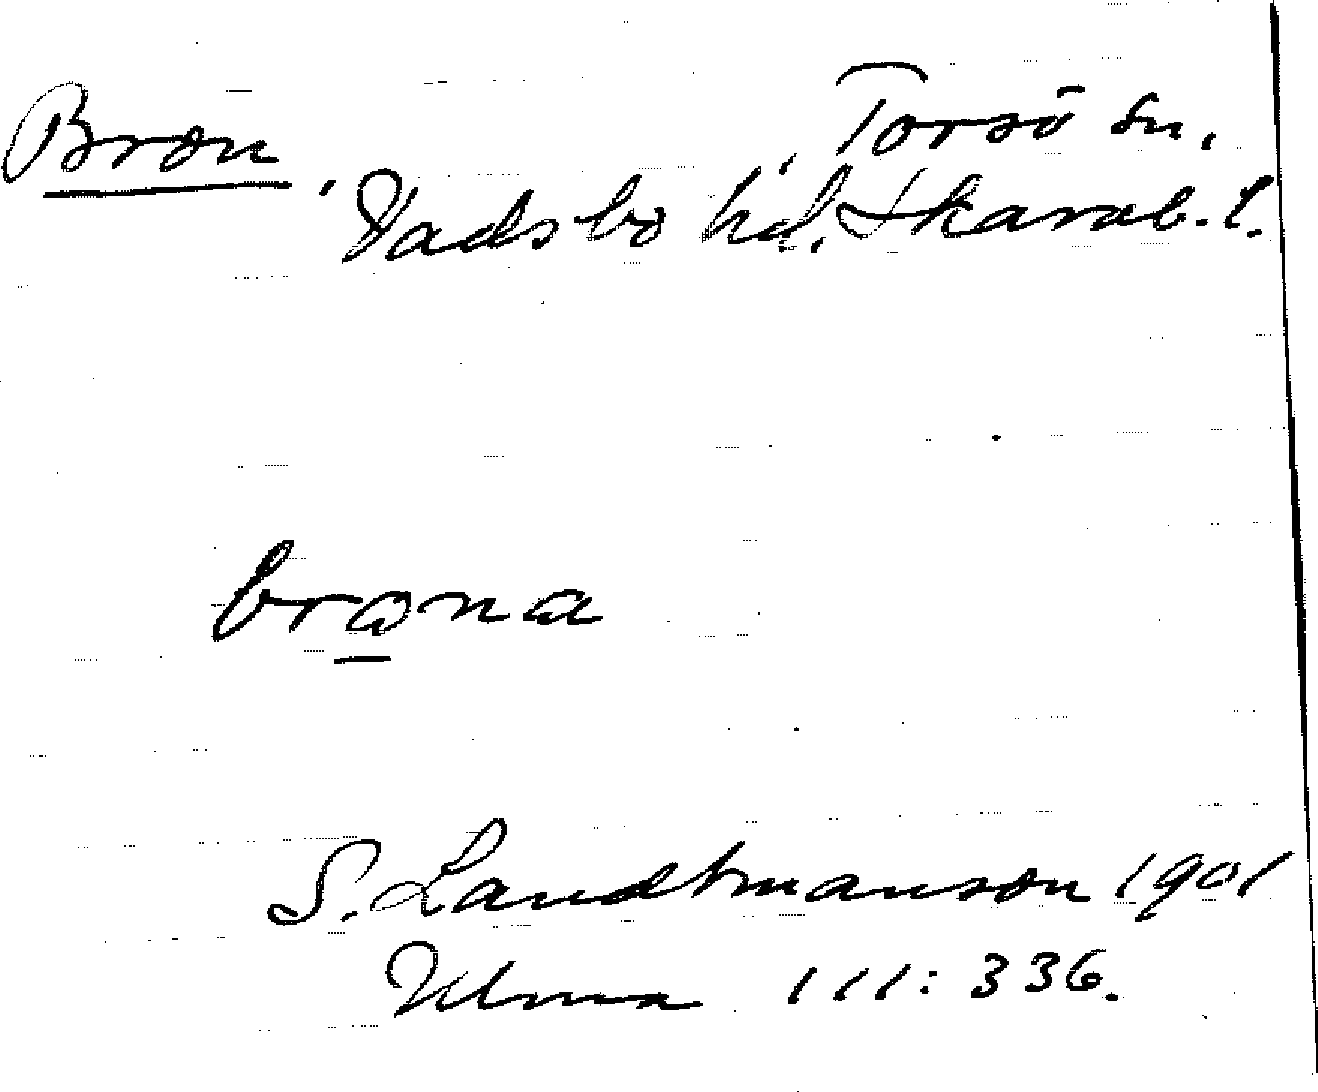 Bron, Torsö sn,
Vadsbo hd. Skarab. l.
brona
S. Landtmanson 1901
Ulma 111: 336.